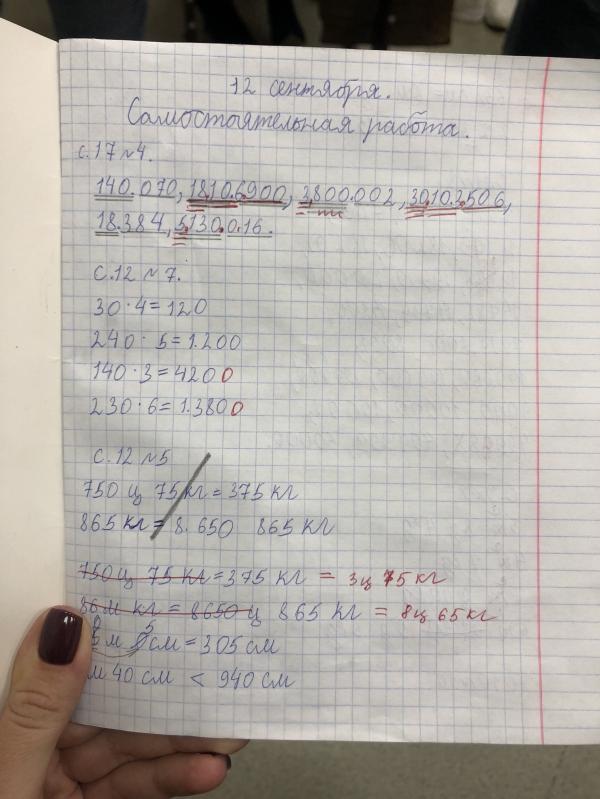 12 сентября.
Самостоятельная работа.
с.17 №4.
140.070, 1810.6900, 3,800.002, 3010.3506,
18.384, 5130.0.16.
с.12 №7.
30·4=120
240·5=1.200
140·3=4200
230·6=1.3800
с.12 №5
750 ц 75 кг = 375 кг
865 кг = 8.650 865 кг
750 ц 75 кг = 375 кг = 3ц 75 кг
86м кг = 8650 ц 865 кг = 8ц 65 кг
м 5 см = 305 см
м 40 см < 940 см